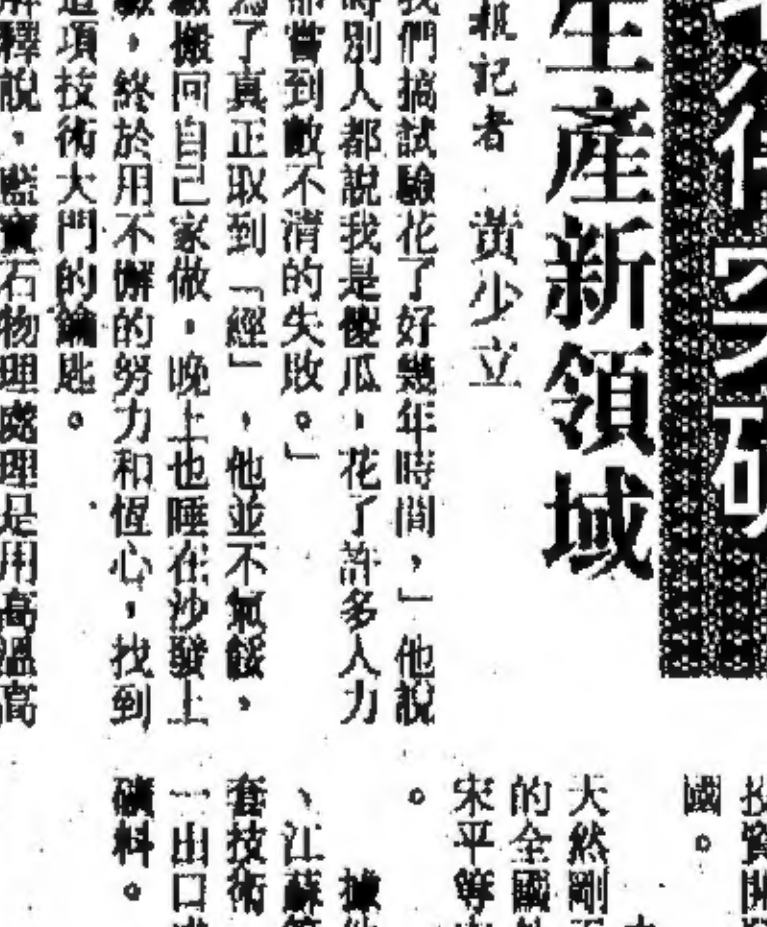 突破
生產新領域
記者 黃少立
我們搞試驗花了好幾年時間,」他說
時別人都說我是傻瓜,花了許多人力
都嘗到數不清的失敗。」
為了真正取到「經」,他並不氣餒,
搬回自己家做,晚上也睡在沙發上
,終於用不懈的努力和恆心,找到
這項技術大門的鑰匙。
解釋說,藍寶石物理處理是用高溫高
投資開
國。
天然剛玉
的全國
宋平等
。
據他
、江蘇等
套技術
一出口
礦料。